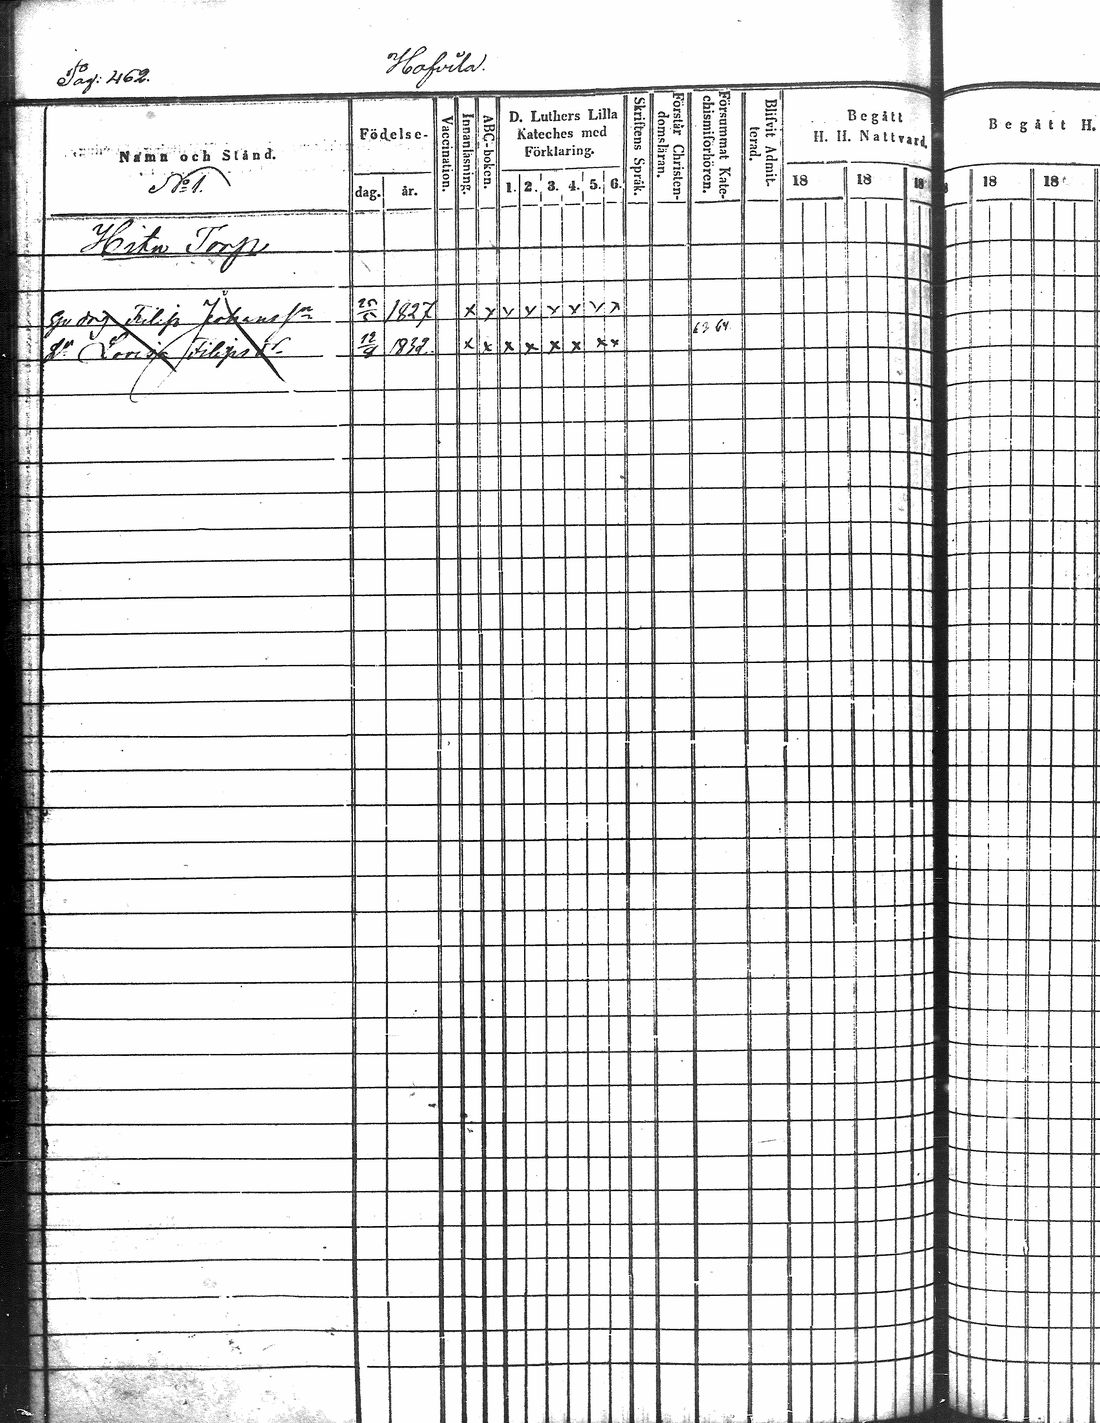 Pag: 462.
Hofvila.
Namn och Stånd.
No 1.
Födelse-
dag.
år.
Vaccination.
Innanläsning.
ABC-boken.
D. Luthers Lilla
Kateches med
Förklaring.
1. 2. 3. 4. 5. 6.
Skriftens Språk.
Förstår Christen-
domsläran.
Försummat Kate-
chismiförhören.
Blifvit Admit-
terad.
Begått
H. H. Nattvard,
18 18 18
Begått H.
18 18
Torp
Filip Johansson 25/5 1827 x x x x x x x x
Lovisa Filipsdr 12/9 1832. x x x x x x x x
63 64